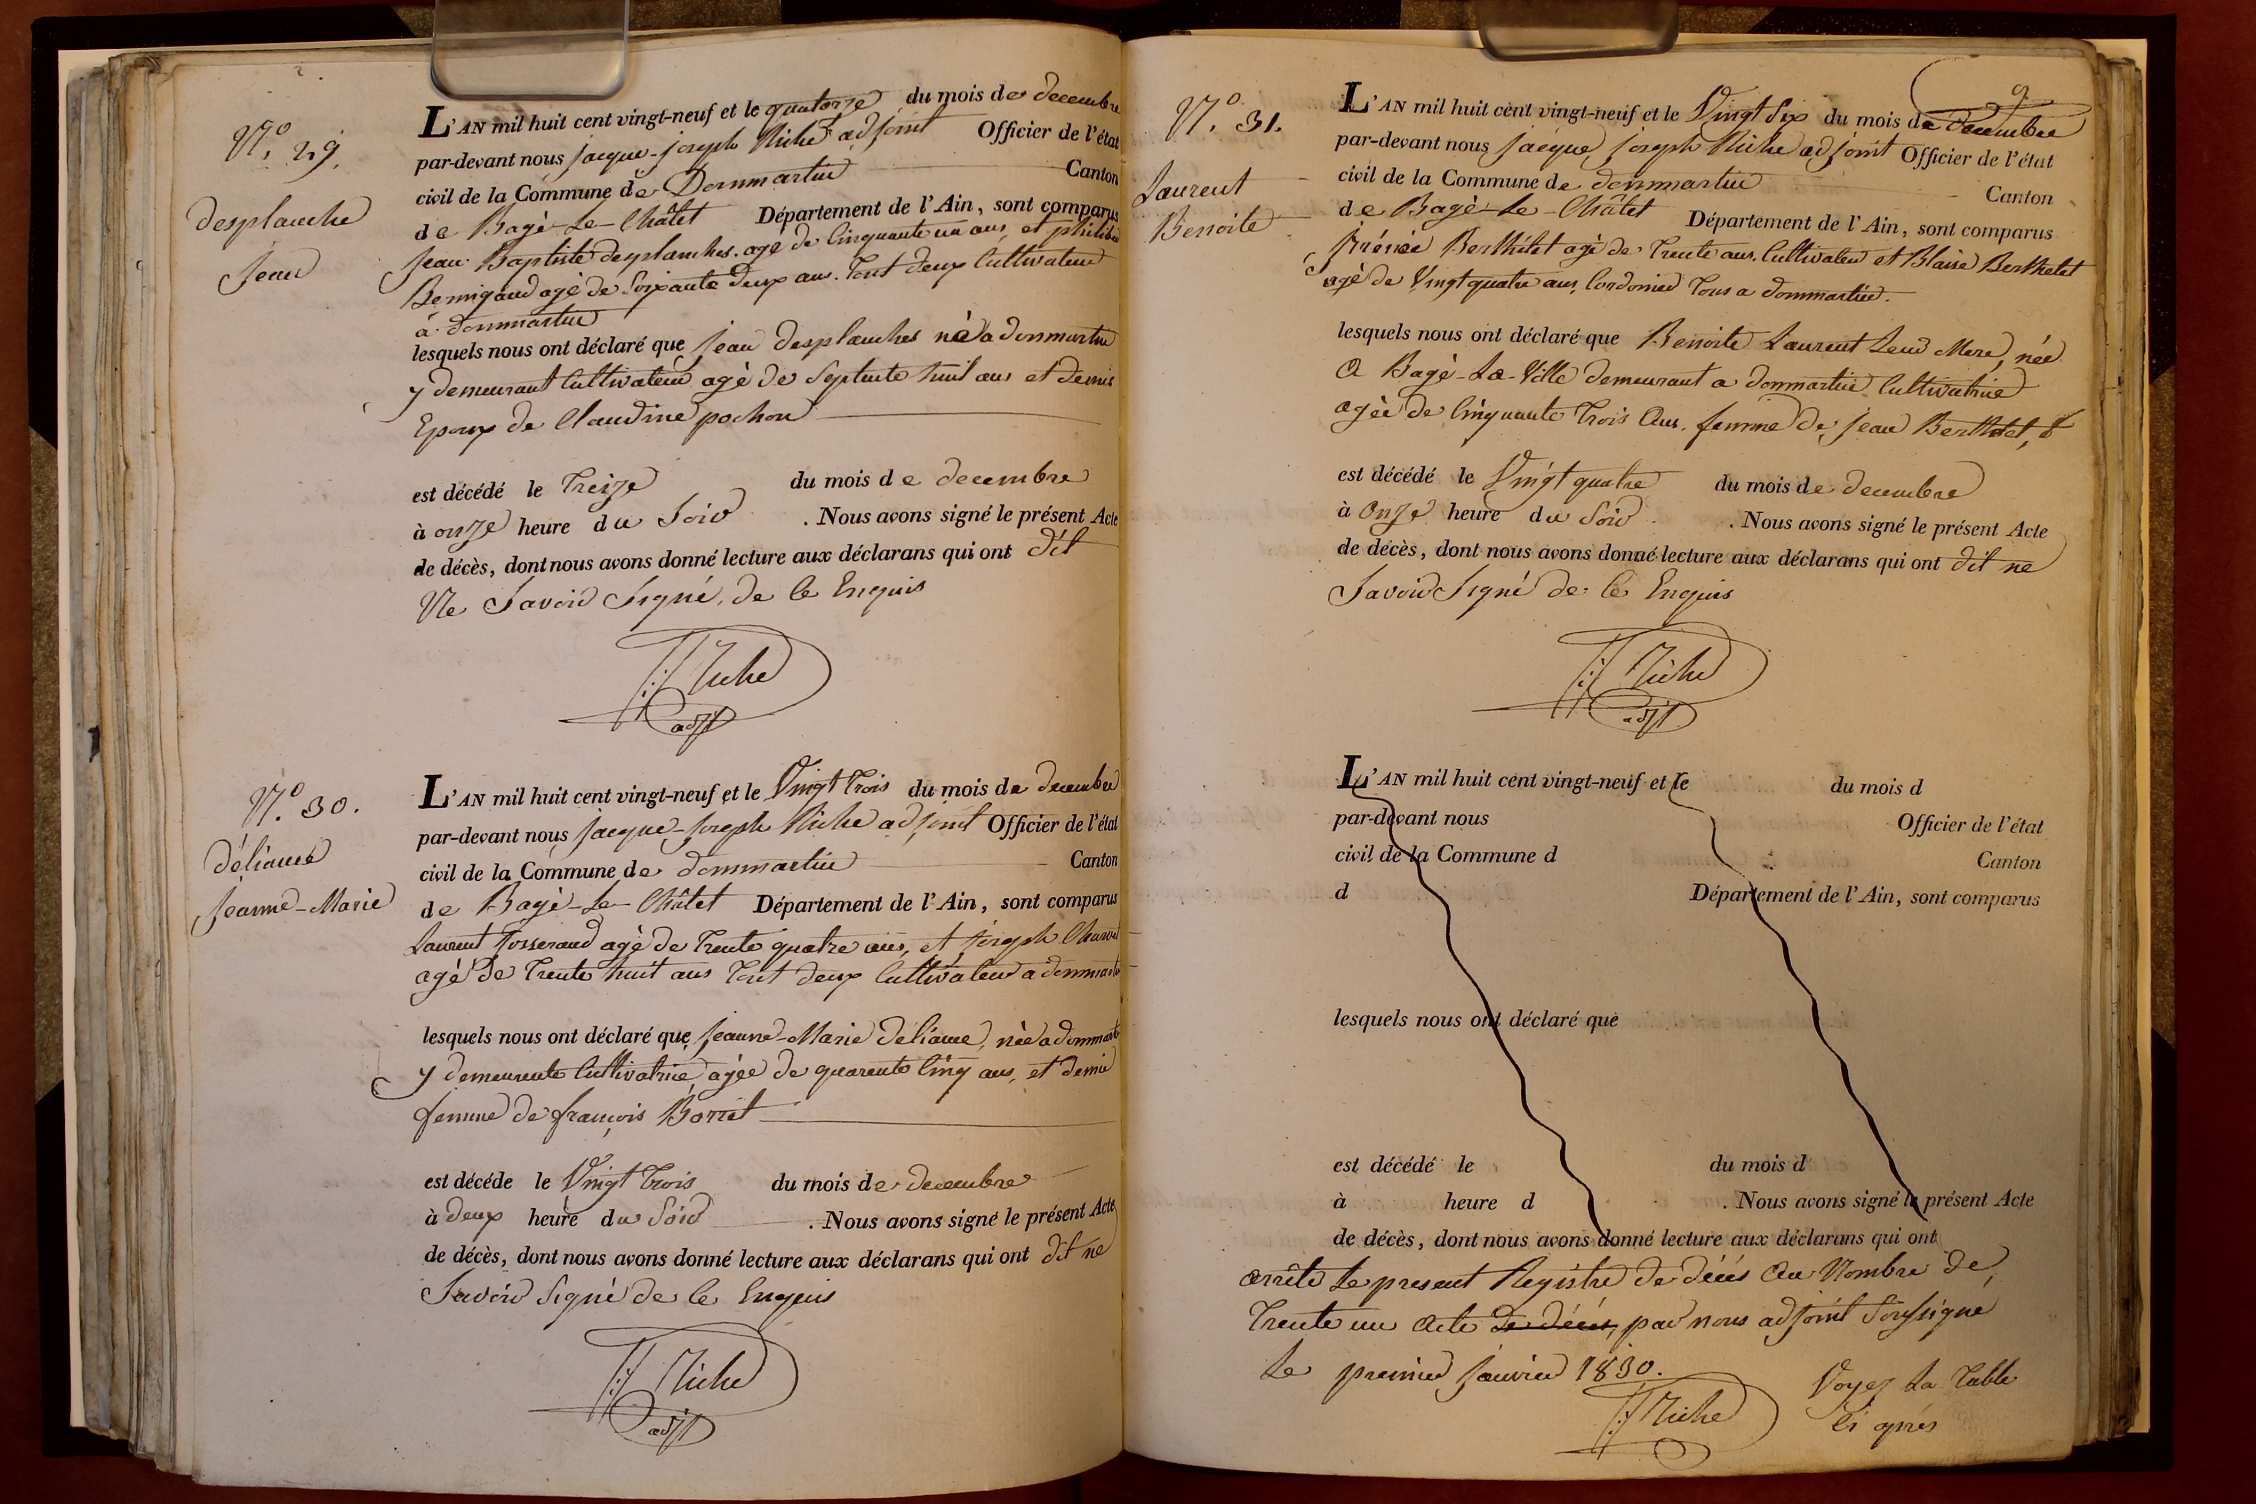 N.º 29.
desplanche
Jean
L'AN mil huit cent vingt-neuf et le quatorze du mois de decembre
par-devant nous jacque-joseph Niche adjoint Officier de l'état
civil de la Commune de Dommartin Canton
de Bagé-Le-Châtel Département de l'Ain, sont comparus
jean Baptiste desplanches. agé de Cinquante un ans, et philibert
Bernigaud agé de Soixante deux ans. Tout deux Cultivateur
à dommartin
lesquels nous ont déclaré que jean desplanches né a dommartin
y demeurant Cultivateur agé de Septente huit ans et demis
Epoux de Claudine pochon
est décédé le Treize du mois de decembre
à onze heure du Soir . Nous avons signé le présent Acte
de décès, dont nous avons donné lecture aux déclarans qui ont dit
Ne Savoir Signé, de Ce Enquis
J:J Niche
adjt
N.º 30.
déliance
jeanne-Marie
L'AN mil huit cent vingt-neuf et le Vingt Trois du mois de decembre
par-devant nous jacque-joseph Niche adjoint Officier de l'état
civil de la Commune de dommartin Canton
de Bagé-Le-Châtel Département de l'Ain, sont comparus
Laurent Josserand agé de Trente quatre ans, et joseph
agé de Trente huit ans Tout deux Cultivateur a dommartin
lesquels nous ont déclaré que jeanne-Marie déliance, née a dommartin
y demeurente Cultivatrice agée de quarente Cinq ans, et demie
femme de françois Borret
est décéde le Vingt Trois du mois de decembre
à deux heure du Soir . Nous avons signé le présent Acte
de décès, dont nous avons donné lecture aux déclarans qui ont dit ne
Savoir Signé de Ce Enquis
J:J Niche
adjt
9
N.º 31.
Laurent
Benoite
L'AN mil huit cent vingt-neuf et le Vingt Six du mois de decembre
par-devant nous jacque joseph Niche adjoint Officier de l'état
civil de la Commune de dommartin Canton
de Bagé-Le-Châtel Département de l'Ain, sont comparus
jrénée Berthelet agé de Trente ans. Cultivateur et Blaise Berthelet
agé de Vingt quatre ans, Cordonier Tous a dommartin.
lesquels nous ont déclaré que Benoite Laurent Leur Mere, née
a Bagé-La-Ville demeurant a dommartin Cultivatrice
agée de Cinquante Trois ans. femme de jean Berthelet,
est décédé le Vingt quatre du mois de decembre
à Onze heure du Soir . Nous avons signé le présent Acte
de décès, dont nous avons donné lecture aux déclarans qui ont dit ne
Savoir Signé de Ce Enquis
J:J Niche
adjt
L'AN mil huit cent vingt-neuf et le du mois d
par-devant nous Officier de l'état
civil de la Commune d Canton
d Département de l'Ain, sont comparus
lesquels nous ont déclaré que
est décédé le du mois d
à heure d . Nous avons signé le présent Acte
de décès, dont nous avons donné lecture aux déclarans qui ont
arrêté Le present Registre de décés au Nombre de,
Trente un acte de décés, par nous adjoint Soussigné
Le premier janvier 1830.
J:J Niche
Voyez La Table
Ci après